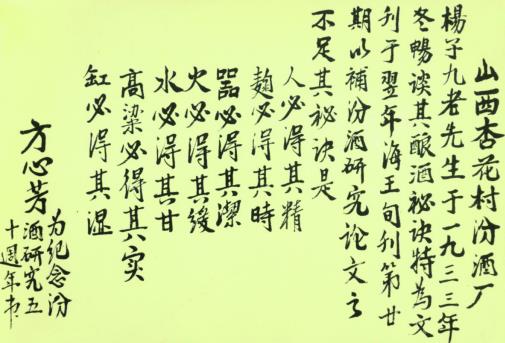 山西杏花村汾酒厂
楊子九老先生于一九三三年
冬暢谈其酿酒祕诀特为文
刊于翌年海王旬刊第廿
期以補汾酒研究论文之
不足其祕诀是
人必得其精
麹必得其時
器必得其潔
火必得其缓
水必得其甘
高粱必得其实
缸必得其湿
方心芳
为纪念汾
酒研究五
十週年书